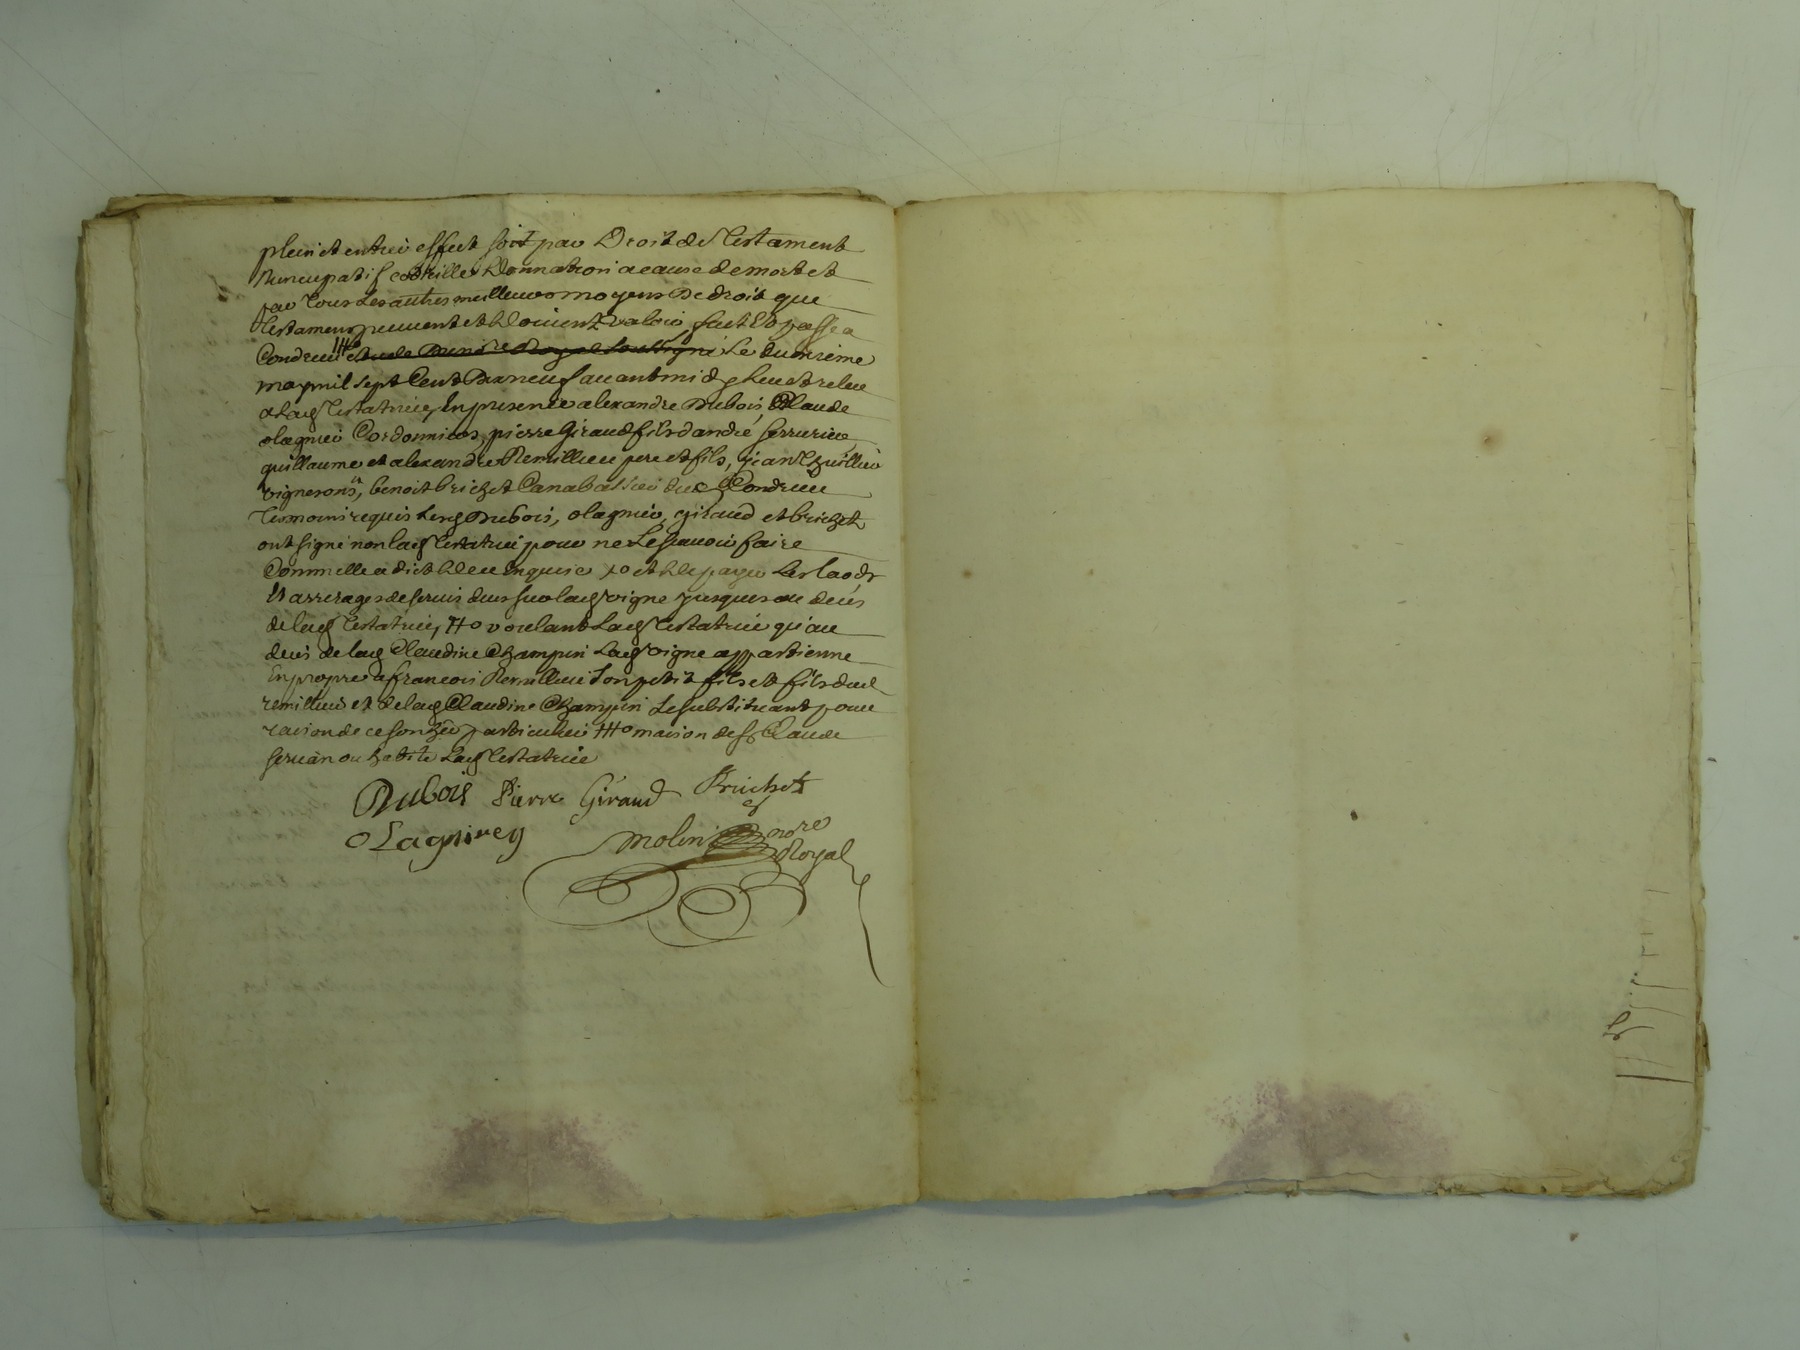 plein et entier effect soit par Droit de Testament
Nuncupatif codicille Donnation a cause de mort et
par Tous Les autres meilleurs moyens De droit que
Testament peuvent et Doivent Valoir, fait Et passé a
Condrieu Led Royal Soussigné Le
may mil sept Cent Dix neuf avant midy Leu et releu
a Lad Testatrice, En presence alexandre Dubois, Claude
olagnier Cordonniers, pierre Giraud fils d'andré serrurier
guillaume et alexandre Remillieu pere et fils, jean
vignerons, benoit brichet Canabassier dud Condrieu
Tesmoins requis Lesd Dubois, olagnier, giraud et brichet
ont signé non lad Testatrice pour ne Le sçavoir faire
Comme elle a dict de ce Enquise et de payer Les laods
Et arrerages de servis deus sur lad vigne jusques au deces
de lad Testatrice, voulant Lad Testatrice qu'au
deces de lad Claudine Champin Lad vigne appartienne
En propre a francois Remillieu son petit fils et fils dud
remillieu et de lad Claudine Champin Le substituant pour
raison de ce son particulier maison de sr Claude
servan ou habite Lad Testatrice
Dubois Pierre Giraud Brichet
OLagnier
Molin nore
Royal